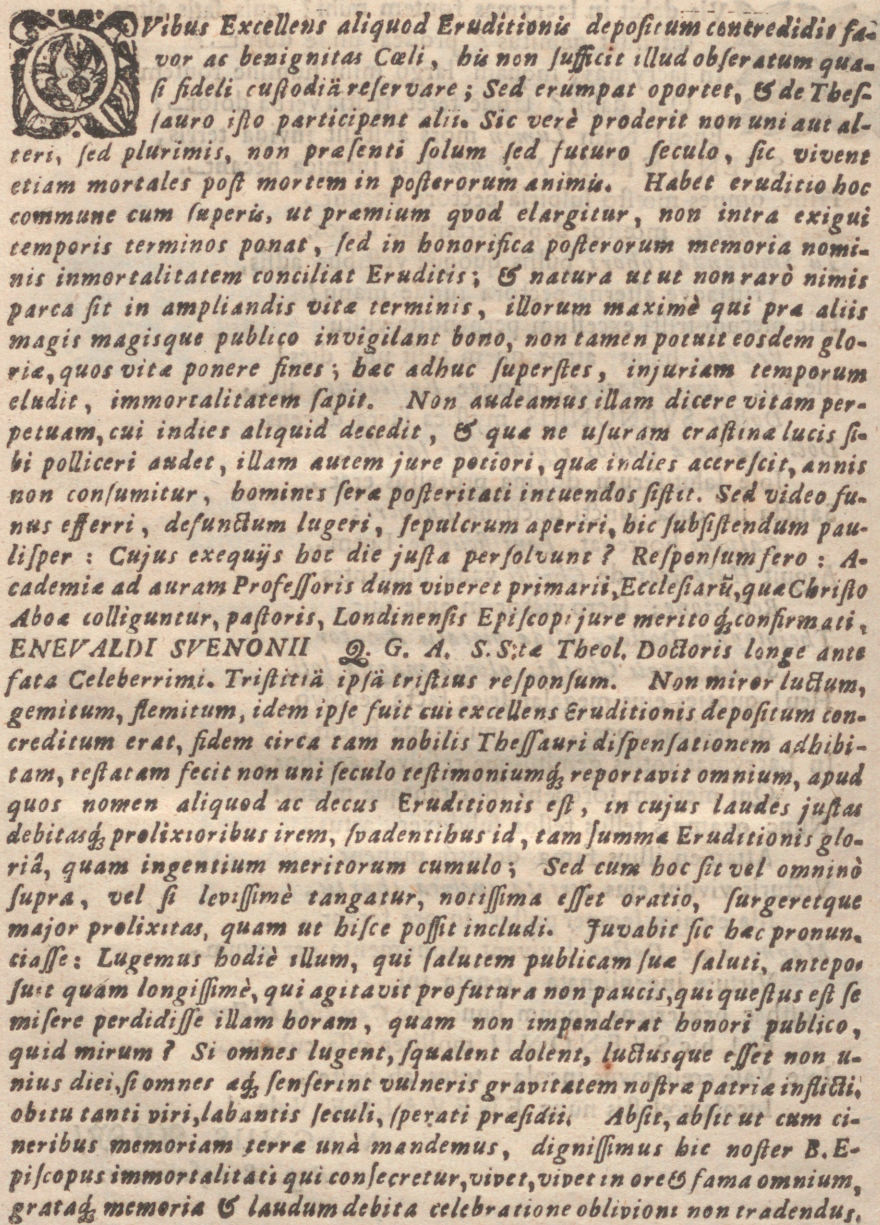 QVibus Excellens aliquod Eruditionis depositum concredidit fa-
vor ac benignitas Cœli, his non sufficit illud obseratum qua-
si fideli custodiâ reservare; Sed erumpat oportet, & de Thes-
sauro isto participent alii. Sic verè proderit non uni aut al-
teri, sed plurimis, non præsenti solum sed futuro seculo, sic vivent
etiam mortales post mortem in posterorum animis. Habet eruditio hoc
commune cum superis, ut præmium qvod elargitur, non intra exigui
temporis terminos ponat, sed in honorifica posterorum memoria nomi-
nis inmortalitatem conciliat Eruditis; & natura utut non rarò nimis
parca sit in ampliandis vitæ terminis, illorum maximè qui præ aliis
magis magisque publico invigilant bono, non tamen potuit eosdem glo-
riæ, quos vitæ ponere fines; hæc adhuc superstes, injuriam temporum
eludit, immortalitatem sapit. Non audeamus illam dicere vitam per-
petuam, cui indies aliquid decedit, & quæ ne usuram crastinæ lucis si-
bi polliceri audet, illam autem jure potiori, quæ indies accrescit, annis
non consumitur, homines seræ posteritati intuendos sistit. Sed video fu-
nus efferri, defunctum lugeri, sepulcrum aperiri, hic subsistendum pau-
lisper: Cujus exequijs hoc die justa persolvunt? Responsum fero: A-
cademiæ ad auram Professoris dum viveret primarii, Ecclesiarū, quæ Christo
Aboæ colliguntur, pastoris, Londinensis Episcopi jure meritoq; confirmati,
ENEVALDI SVENONII Q. G. A. S. S:tæ Theol. Doctoris longe ante
fata Celeberrimi. Tristitiâ ipsâ tristius responsum. Non miror luctum,
gemitum, flemitum, idem ipse fuit cui excellens Eruditionis depositum con-
creditum erat, fidem circa tam nobilis Thessauri dispensationem adhibi-
tam, testatam fecit non uni seculo testimoniumq; reportavit omnium, apud
quos nomen aliquod ac decus Eruditionis est, in cujus laudes justas
debitasq; prolixioribus irem, svadentibus id, tam summa Eruditionis glo-
riâ, quam ingentium meritorum cumulo; Sed cum hoc sit vel omninò
supra, vel si levissimè tangatur, notissima esset oratio, surgeretque
major prolixitas, quam ut hisce possit includi. Juvabit sic hæc pronun-
ciasse: Lugemus hodiè illum, qui salutem publicam suæ saluti, antepo-
suit quàm longissimè, qui agitavit profutura non paucis, qui questus est se
misere perdidisse illam horam, quam non impenderat honori publico,
quid mirum? Si omnes lugent, squalent dolent, luctusque esset non u-
nius diei, si omnes æq; senserint vulneris gravitatem nostræ patriæ inflicti,
obitu tanti viri, labantis seculi, sperati præsidii. Absit, absit ut cum ci-
neribus memoriam terræ unà mandemus, dignissimus hic noster B. E-
piscopus immortalitati qui consecretur, vivet, vivet in ore & fama omnium,
grataq; memoria & laudum debita celebratione oblivioni non tradendus.